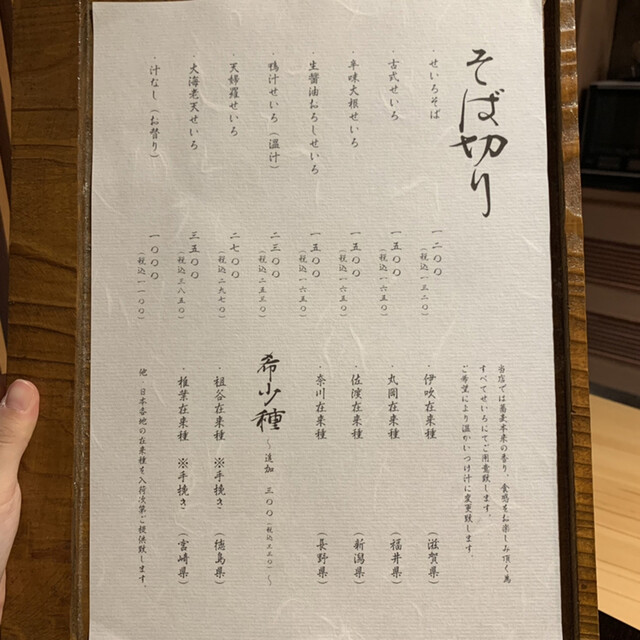 そば切り
・せいろそば 一二〇〇(税込一三二〇)
・古式せいろ 一五〇〇(税込一六五〇)
・辛味大根せいろ 一五〇〇(税込一六五〇)
・生醤油おろしせいろ 一五〇〇(税込一六五〇)
・鴨汁せいろ(温汁) 二三〇〇(税込二五三〇)
・天婦羅せいろ 二七〇〇(税込二九七〇)
・大海老天せいろ 三五〇〇(税込三八五〇)
・汁なし(お替り) 一〇〇〇(税込一一〇〇)
当店では蕎麦本来の香り、食感をお楽しみ頂く為
すべてせいろにてご用意致します。
ご希望により温かいつけ汁に変更致します。
・伊吹在来種(滋賀県)
・丸岡在来種(福井県)
・佐渡在来種(新潟県)
・奈川在来種(長野県)
希少種 ~追加 三〇〇(税込三三〇)~
・祖谷在来種 ※手挽き(徳島県)
・椎葉在来種 ※手挽き(宮崎県)
他、日本各地の在来種を入荷次第ご提供致します。